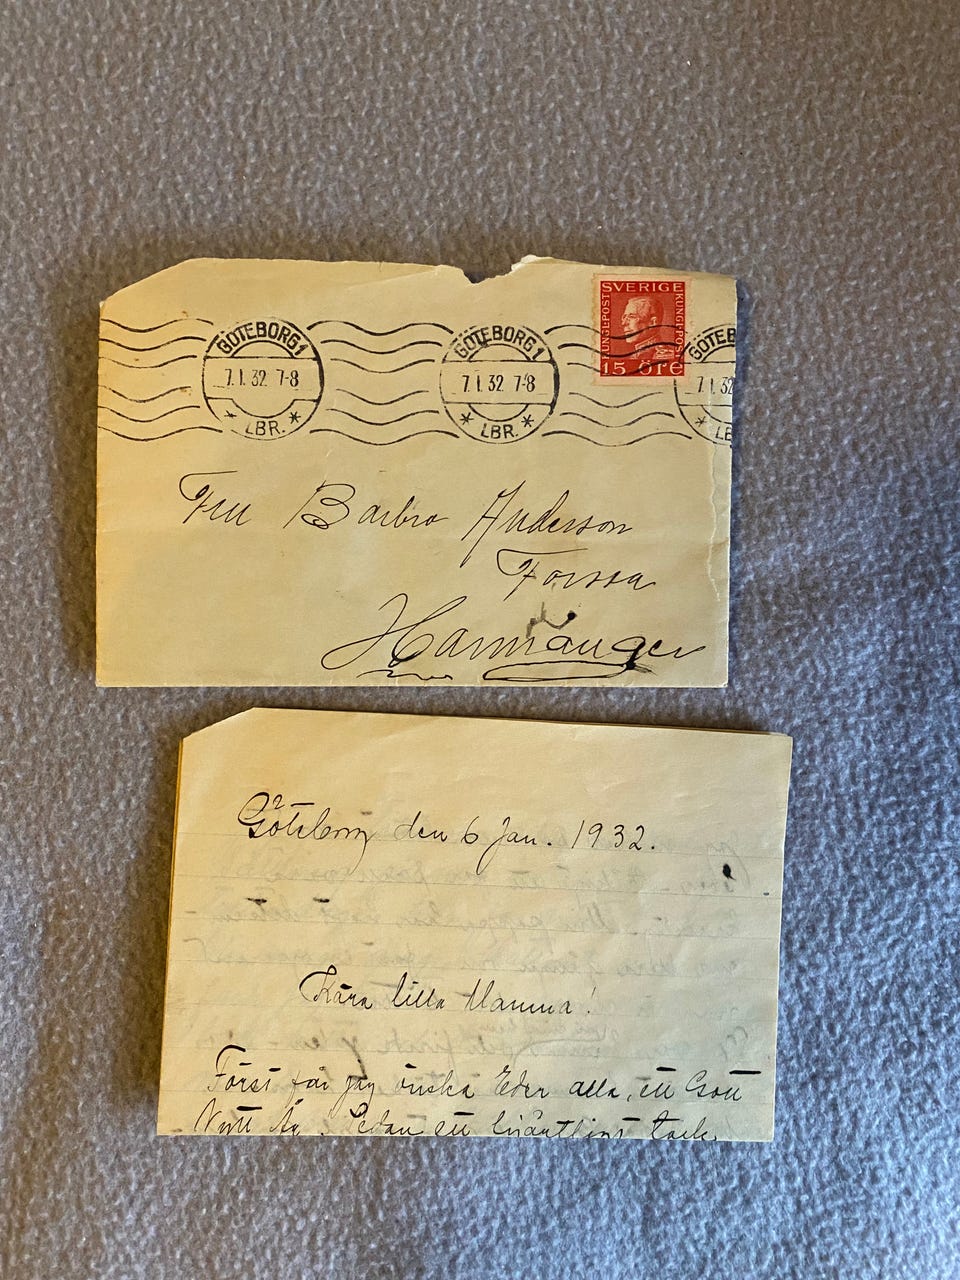 SVERIGE
KUNGL·POST
15 öre
GÖTEBORG 1
7.1.32 7-8
* LBR. *
GÖTEBORG 1
7.1.32 7-8
* LBR. *
GÖTEB
7.1.32
LB
Fru Barbro Anderson
Forssa
Harmånger
Göteborg den 6 Jan. 1932.
Kära lilla Mamma!
Först får jag önska Eder alla, ett Gott
Nytt År. Sedan ett hjärtligt tack